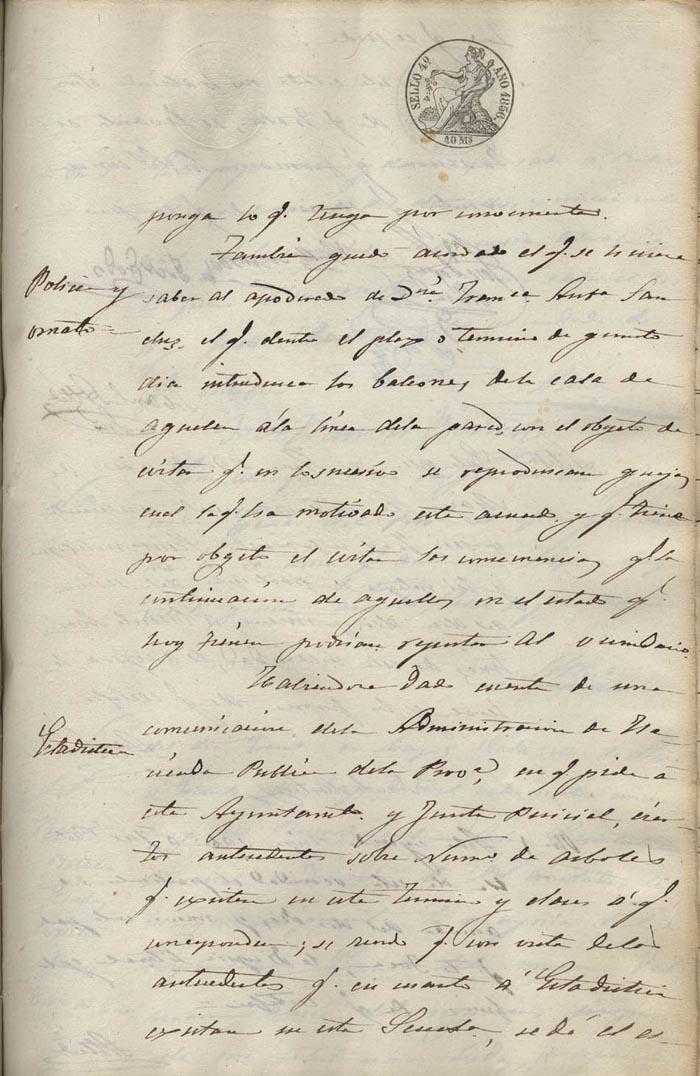 SELLO 4º AÑO 1856.
40 Ms
ponga lo q. tenga por conveniente.
Tambien quedó acordado el q. se hiciera
Policia y
ornato =
saber al apoderado de Dña. Franca. Rufa San
chez, el q. dentro el plazo o termino de quinto
dia introduzca los balcones, dela casa de
aquella á la linea dela pared, con el objeto de
evitar q. en lo sucesivo se reproduzcan quejas,
cual la q. ha motivado este acuerdo, y q. tiene
por objeto el evitar las consecuencias, q. la
continuacion de aquellos, en el estado q.
hoy tienen podrian reportar al vecindario.
Habiendose dado cuenta de una
Estadistica
comunicacion dela Administracion de Ha
cienda Publica dela Prova., en q. pide á
este Ayuntamto. y Junta Pericial, cier
tos antecedentes sobre Numo. de arboles
q. existen en este Termino y clases á q.
corresponden; se acordó q. con vista delos
antecedentes q. en cuanto á Estadistica
existan en esta Secreta., se dé el es-